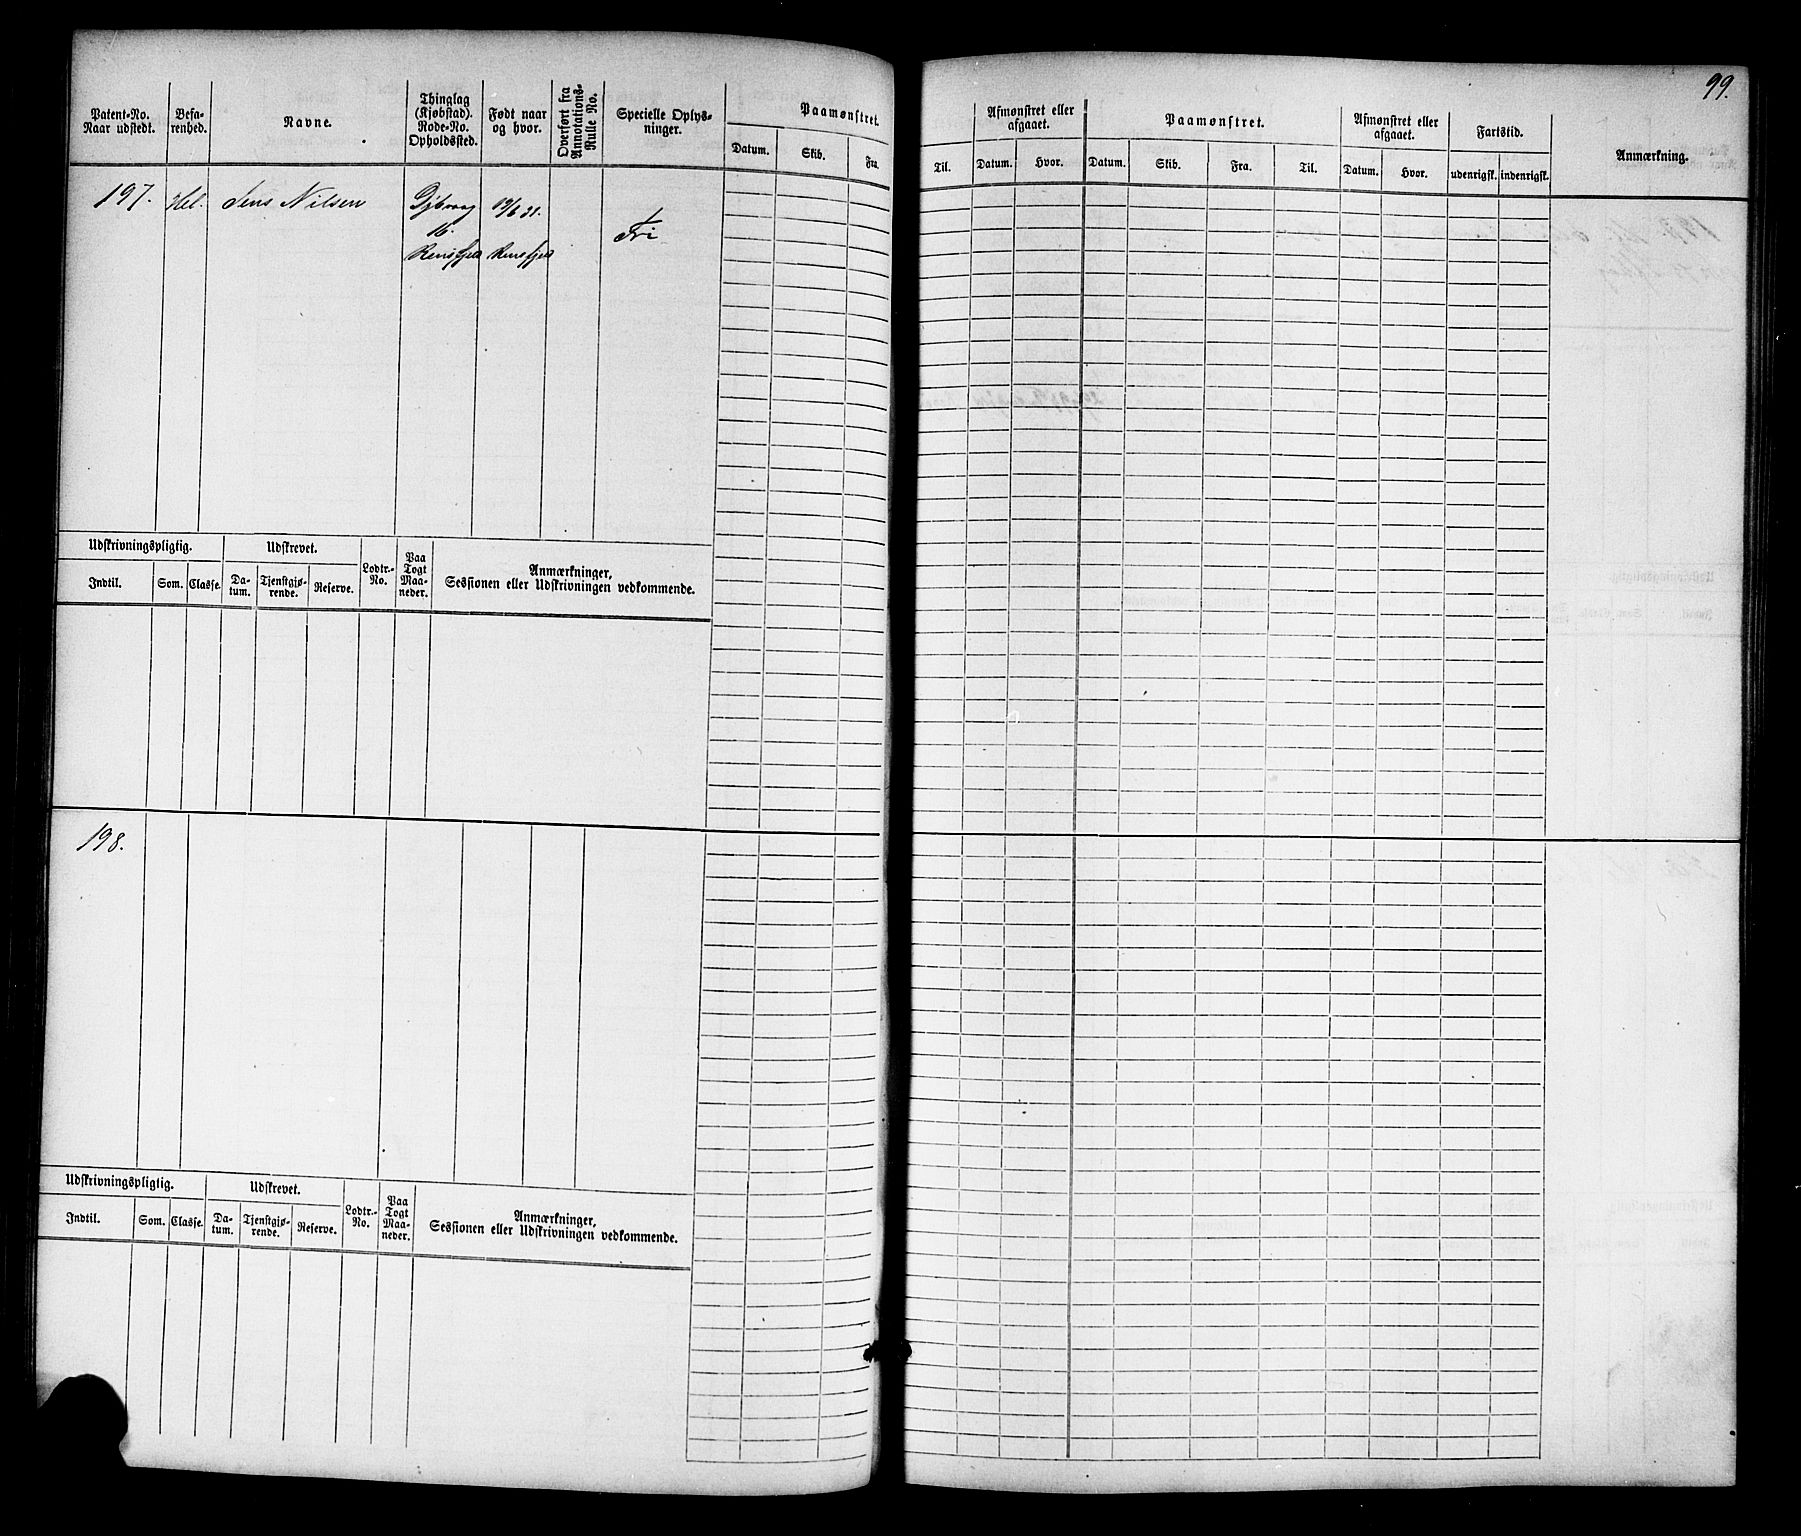 99.
Patent-No. Naar udstedt.
Befarenhed.
Navne.
Thinglag (Kjøbstad). Rode-No. Opholdssted.
Født naar og hvor.
Overført fra Annotations-Rulle No.
Specielle Oplysninger.
Paamønstret.
Datum. Skib. Fra.
Til.
Afmønstret eller afgaaet.
Datum. Hvor.
Paamønstret.
Datum. Skib. Fra. Til.
Afmønstret eller afgaaet.
Datum. Hvor.
Fartstid.
udenrigsk. indenrigsk.
Anmærkning.
197. Hel. Jens Nilsen
16.
Fri
Udskrivningspligtig. Udskrevet. Lodtr.-No. Paa Togt Maaneder. Anmærkninger, Sessionen eller Udskrivningen vedkommende.
Indtil. Som. Classe. Datum. Tjenstgjørende. Reserve.
198.
Udskrivningspligtig. Udskrevet. Lodtr.-No. Paa Togt Maaneder. Anmærkninger, Sessionen eller Udskrivningen vedkommende.
Indtil. Som. Classe. Datum. Tjenstgjørende. Reserve.